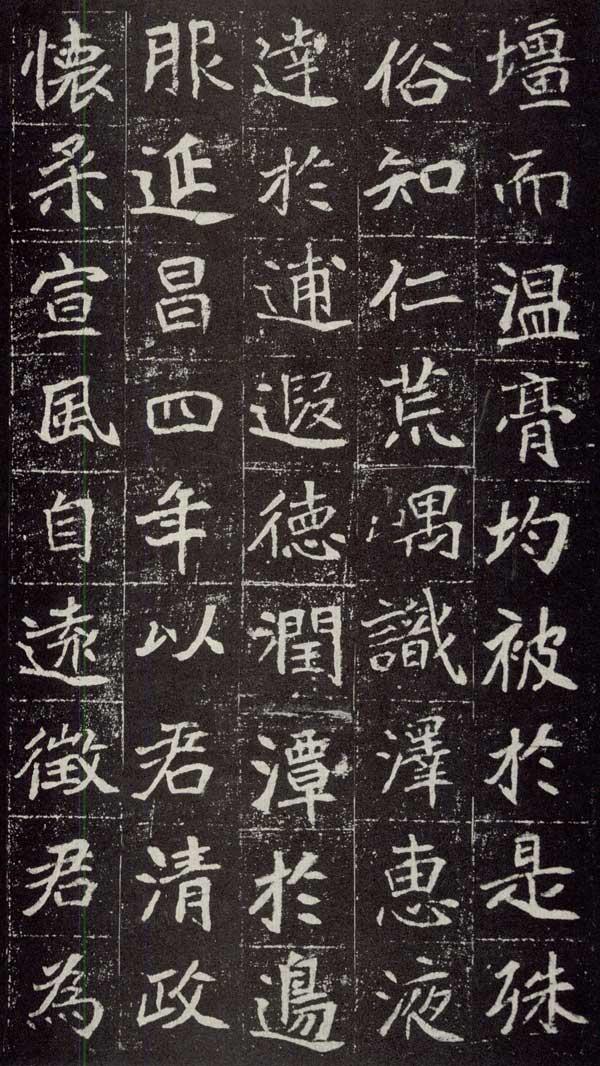 壃而温膏均被於是殊
俗知仁荒嵎識澤惠液
達於逋遐德潤潭於邊
服延昌四年以君清政
懷柔宣風自遠徵君為